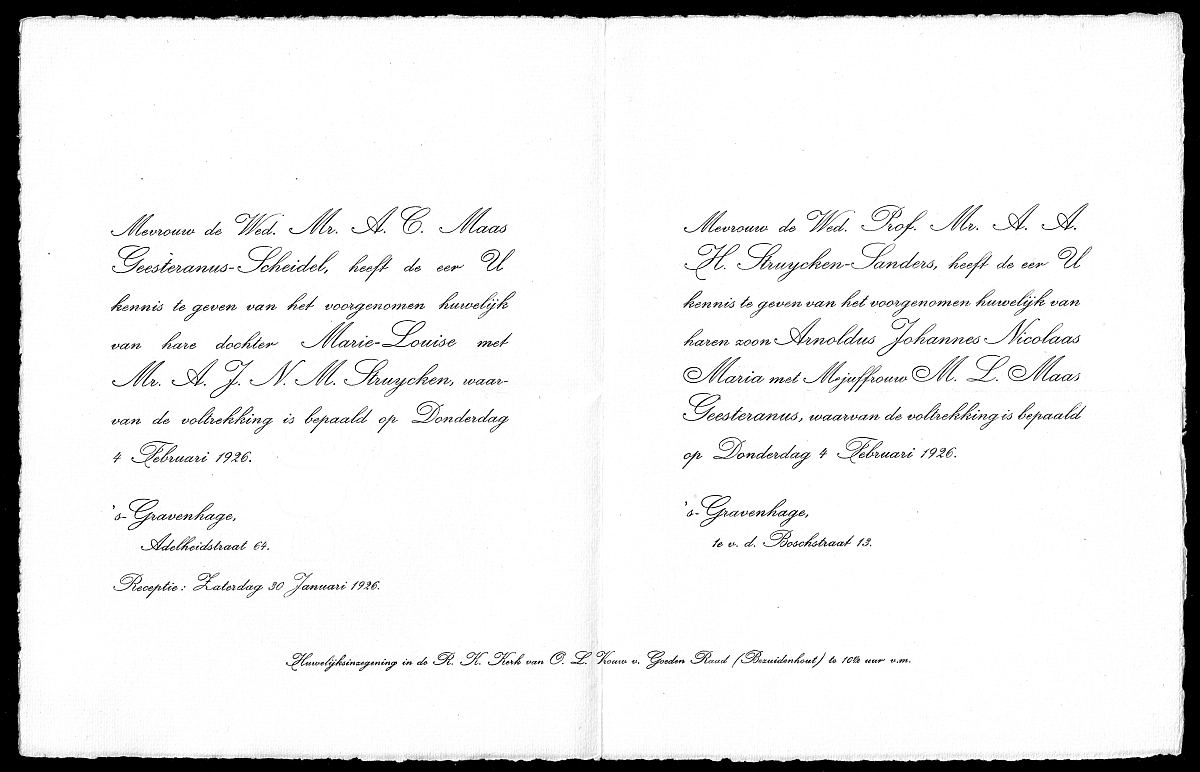 Mevrouw de Wed. Mr. A. C. Maas
Geesteranus-Scheidel, heeft de eer U
kennis te geven van het voorgenomen huwelijk
van hare dochter Marie-Louise met
Mr. A. J. N. M. Struycken, waar-
van de voltrekking is bepaald op Donderdag
4 Februari 1926.
's-Gravenhage,
Adelheidstraat 64.
Receptie: Zaterdag 30 Januari 1926.
Mevrouw de Wed. Prof. Mr. A. A.
H. Struycken-Sanders, heeft de eer U
kennis te geven van het voorgenomen huwelijk van
haren zoon Arnoldus Johannes Nicolaas
Maria met Mejuffrouw M. L. Maas
Geesteranus, waarvan de voltrekking is bepaald
op Donderdag 4 Februari 1926.
's-Gravenhage,
1e v. d. Boschstraat 13.
Huwelijksinzegening in de R. K. Kerk van O. L. Vouw v. Goeden Raad (Bezuidenhout) te 10½ uur v.m.